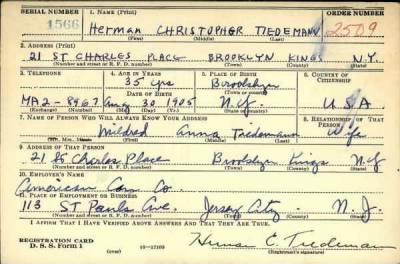 SERIAL NUMBER 1. NAME (Print) ORDER NUMBER
1566 Herman CHRISTOPHER TIEDEMANN 2509
(First) (Middle) (Last)
2. ADDRESS (Print)
21 ST CHARLES PLACE BROOKLYN KINGS N.Y.
(Number and street or R. F. D. number) (Town) (County) (State)
3. TELEPHONE 4. AGE IN YEARS 5. PLACE OF BIRTH 6. COUNTRY OF CITIZENSHIP
35 yrs Brooklyn
MA2-8967 Aug 30 1905 N.Y. USA
(Exchange) (Number) (Mo.) (Day) (Yr.) (State or country)
7. NAME OF PERSON WHO WILL ALWAYS KNOW YOUR ADDRESS 8. RELATIONSHIP OF THAT PERSON
Mildred Anna Tiedemann Wife
(Mr., Mrs., Miss) (First) (Middle) (Last)
9. ADDRESS OF THAT PERSON
21 St Charles Place Brooklyn Kings N.Y
(Number and street or R. F. D. number) (Town) (County) (State)
10. EMPLOYER'S NAME
American Can Co.
11. PLACE OF EMPLOYMENT OR BUSINESS
113 St Pauls Ave. Jersey City - N.J.
(Number and street or R. F. D. number) (Town) (County) (State)
I AFFIRM THAT I HAVE VERIFIED ABOVE ANSWERS AND THAT THEY ARE TRUE.
REGISTRATION CARD
D. S. S. Form 1 (over) 16-17105 Herman C. Tiedemann
(Registrant's signature)